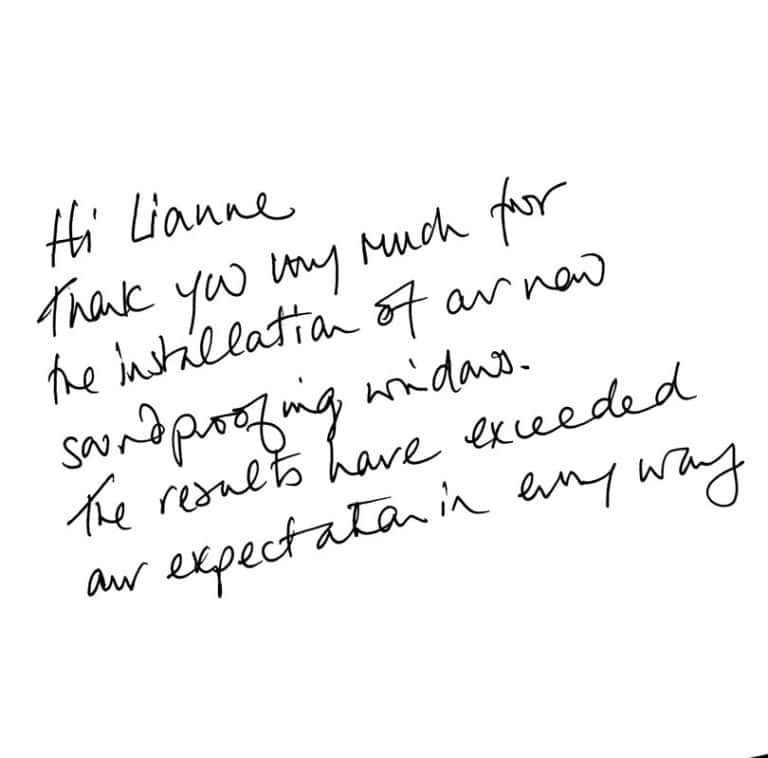 Hi Lianne
Thank you very much for
the installation of our new
soundproofing windows.
The results have exceeded
our expectation in every way